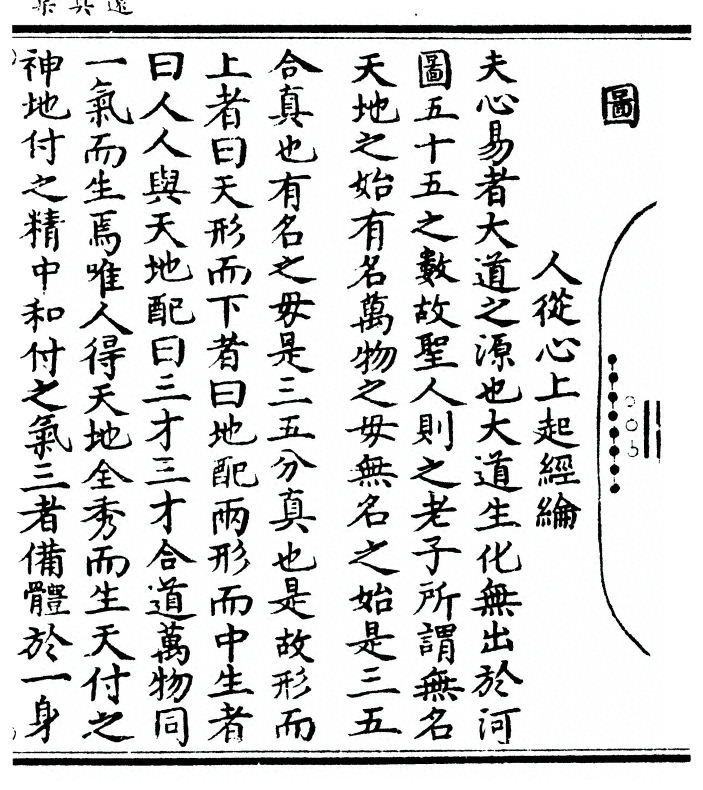 圖
人從心上起經綸
夫心易者大道之源也大道生化無出於河
圖五十五之數故聖人則之老子所謂無名
天地之始有名萬物之毋無名之始是三五
合真也有名之毋是三五分真也是故形而
上者曰天形而下者曰地配兩形而中生者
曰人人與天地配曰三才三才合道萬物同
一氣而生焉唯人得天地全秀而生天付之
神地付之精中和付之氣三者備體於一身